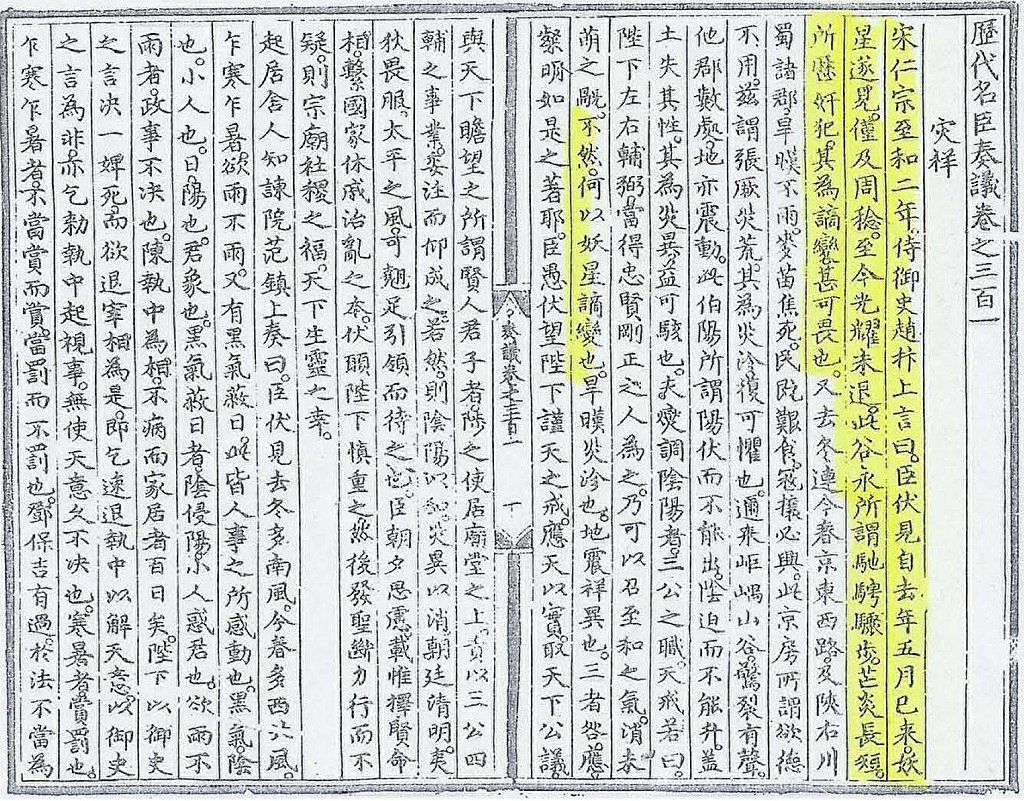 歷代名臣奏議卷之三百一
災祥
宋仁宗至和二年侍御史趙抃上言曰臣伏見自去年五月已来妖
星遂見僅及周稔至今光耀未退此谷永所謂馳騁驟步芒炎長短
所歷奸犯其為謫變甚可畏也又去冬連今春京東西路及陝右川
蜀諸郡旱暵不雨麥苗焦死民既艱食寇攘必興此京房所謂欲德
不用茲謂張厥災荒其為災沴復可懼也邇来岷嶓山谷驚裂有聲
他郡數處地亦震動此伯陽所謂陽伏而不能出陰迫而不能升蓋
土失其性其為災異益可駭也夫燮調陰陽者三公之職天戒若曰
陛下左右輔弼當得忠賢剛正之人為之乃可以召至和之氣消未
萌之眚不然何以妖星謫變也旱暵災沴也地震祥異也三者咎應
槩明如是之著耶臣愚伏望陛下謹天之戒應天以實取天下公議
與天下瞻望之所謂賢人君子者陟之使居廟堂之上責以三公四
輔之事業委注而仰成之若然則陰陽以和災異以消朝廷清明夷
狄畏服太平之風可翹足引領而待之也臣朝夕思慮載惟擇賢命
相繫國家休戚治亂之本伏願陛下慎重之然後發聖斷力行而不
疑則宗廟社稷之福天下生靈之幸
起居舍人知諫院范鎮上奏曰臣伏見去冬多南風今春多西北風
乍寒乍暑欲雨不雨又有黑氣蔽日此皆人事之所感動也黑氣陰
也小人也日陽也君象也黑氣蔽日者陰侵陽小人惑君也欲雨不
雨者政事不决也陳執中為相不病而家居者百日矣陛下以御史
之言决一婢死而欲退宰相為是即乞速退執中以解天意以御史
之言為非亦乞勑執中起視事無使天意久不决也寒暑者賞罰也
乍寒乍暑者不當賞而賞當罰而不罰也鄧保吉有過於法不當為
奏議卷之三百一
一